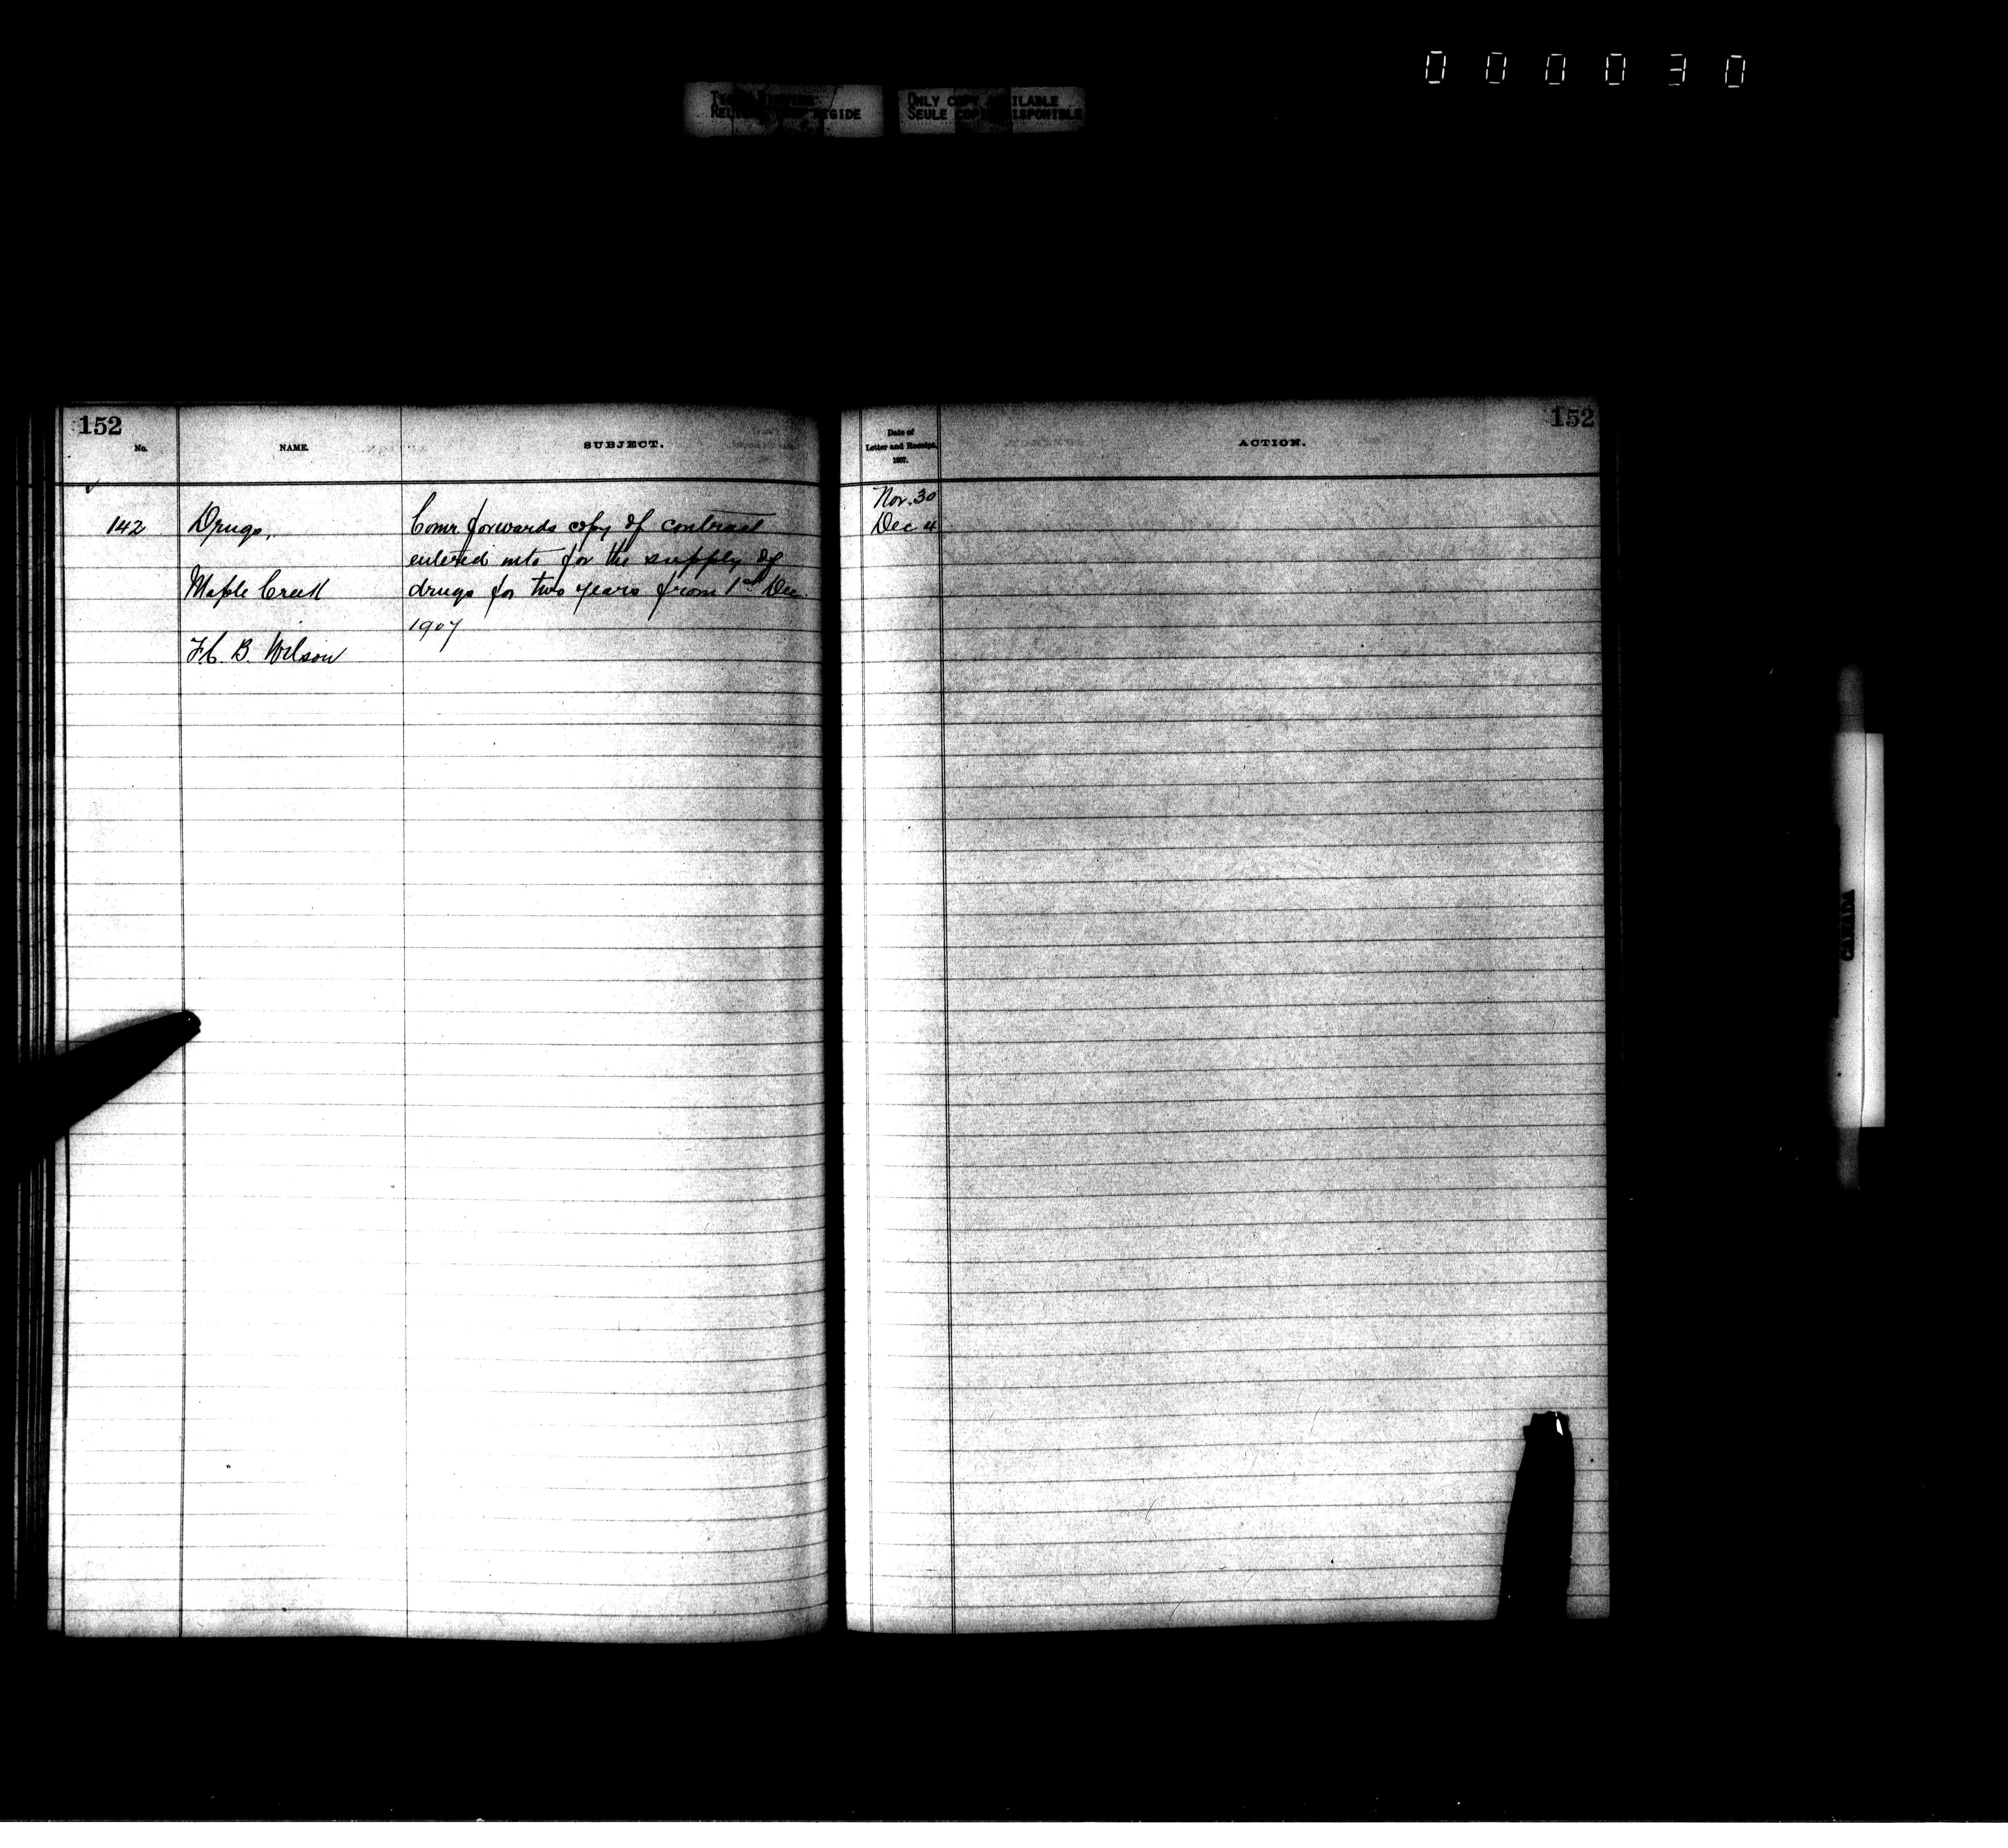 000030
ONLY COPY AVAILABLE
SEULE COPIE DISPONIBLE
152
No.
NAME.
SUBJECT.
Date of
Letter and Receipt,
1907.
ACTION.
152
Nov. 30
142 Drugs, Comr forwards copy of contract Dec 4
entered into for the supply of
Maple Creek drugs for two years from 1st Dec.
1907
B. Wilson
CANADA